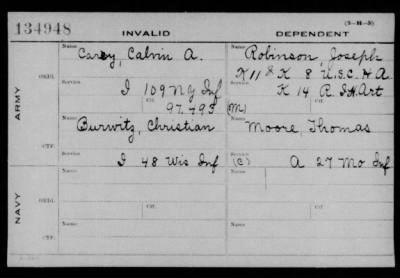 134948
INVALID
DEPENDENT
(3-H-3)
ARMY
ORIG.
Name
Carey, Calvin A.
Service
I 109 N.Y. Inf
Ctf.
97.495
Name
Robinson, Joseph
K 11 & K 8 U.S.C.H.A
Service
K 14 R.I.H.Art
Ctf.
(M)
CTF.
Name
Burwitz, Christian
Service
I 48 Wis Inf
Name
Moore, Thomas
Service
(C) A 27 Mo Inf
NAVY
ORIG.
Name
Ctf.
Name
Ctf.
CTF.
Name
Name